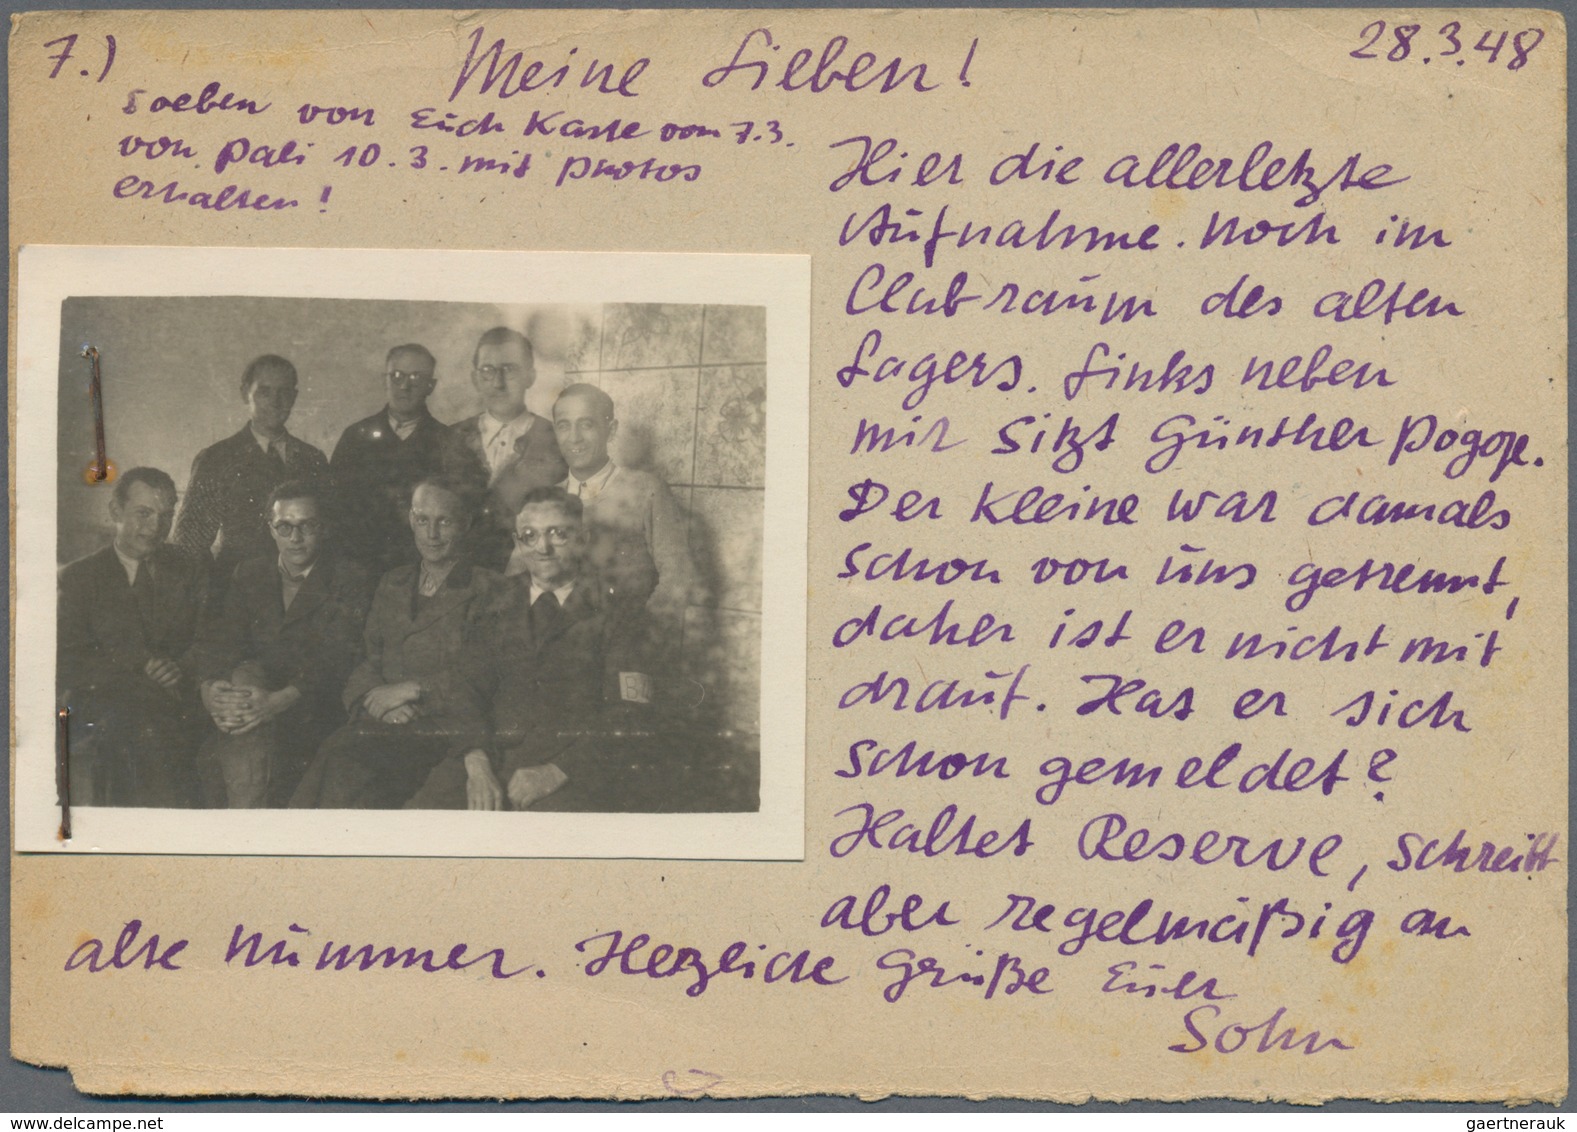 7.)
Meine Lieben!
28.3.48
soeben von Euch Karte vom 7.3.
von Pali 10.3. mit Photos
erhalten!
Hier die allerletzte
Aufnahme. Noch im
Clubraum des alten
Lagers. Links neben
mir sitzt Günther
Der Kleine war damals
schon von uns getrennt,
daher ist er nicht mit
drauf. Hat er sich
schon gemeldet?
Haltet Reserve, schreibt
aber regelmäßig an
alte Nummer. Herzliche Grüße Euer
Sohn
www.delcampe.net
gaertnerauk